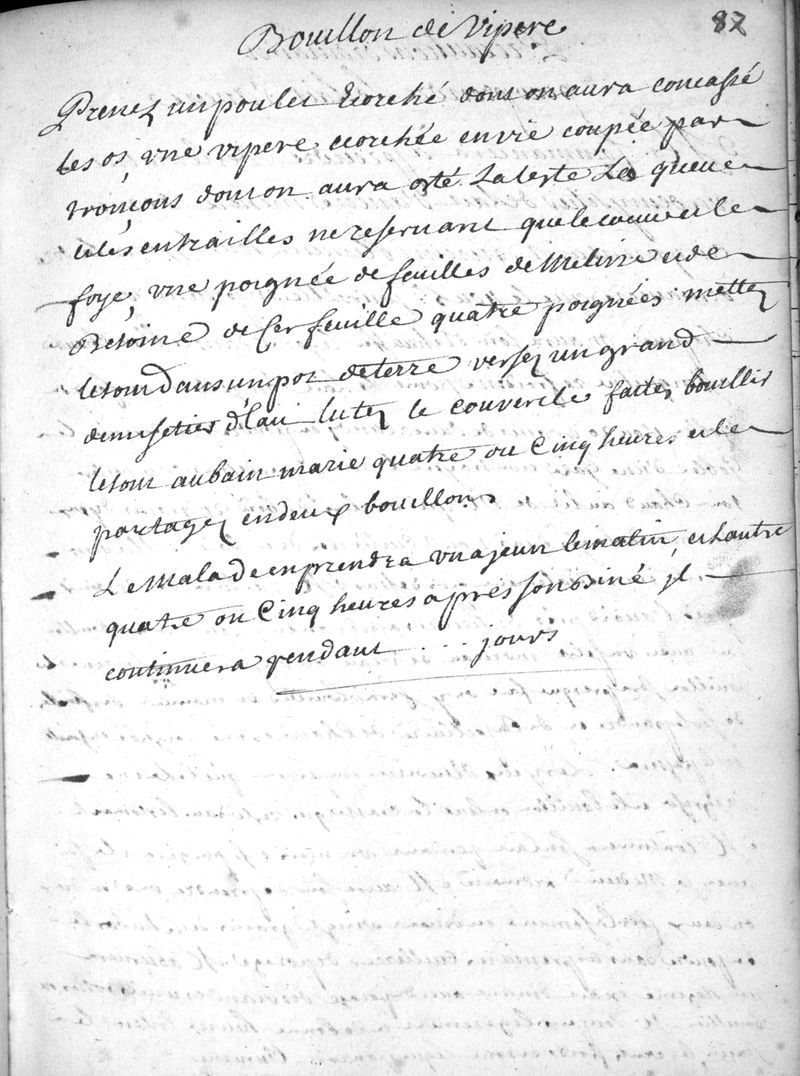 Bouillon de Vipere
87
Prenez un poulet Ecorché dont on aura concassé
les os, vne vipere ecorchée en vie coupée par
tronçons dont on aura osté La teste La queue
et les entrailles ne reservant que le coeur et le
foye, vne poignée de feuilles de Melisse et de
Betoine de Cerfeuille quatre poignées mettez
le tout dans un pot de terre versez un grand
demisetier d'Eau lutez le couvercle faites bouillir
le tout au bain marie quatre ou Cinq heures et le
partagez en deux bouillons
Le Malade en prendra vn a jeun le matin et Lautre
quatre ou Cinq heures apres son diné jl
continuera pendant ... jours